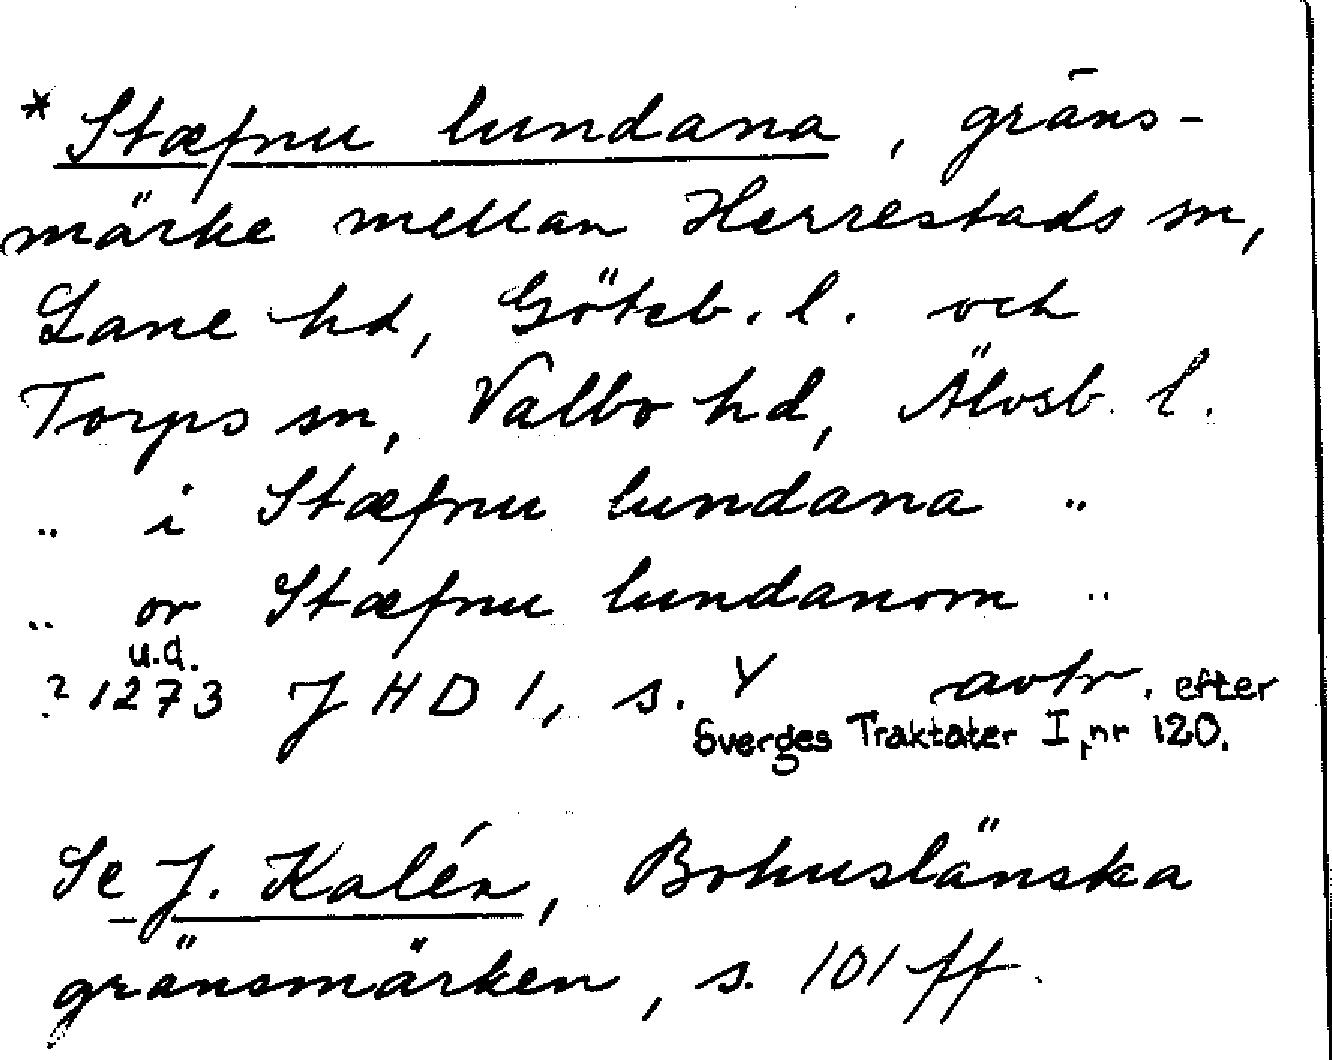 * Stæfnu lundana, gräns-
märke mellan Herrestads sn,
Lane hd, Göteb. l. och
Torps sn, Valbo hd, Älvsb. l.
.. i Stæfnu lundana ..
.. or Stæfnu lundanom ..
u.d.
? 1273 JHD 1, s. Y avtr. efter
Sverges Traktater I, nr 120.
Se J. Kalén, Bohuslänska
gränsmärken, s. 101 ff.